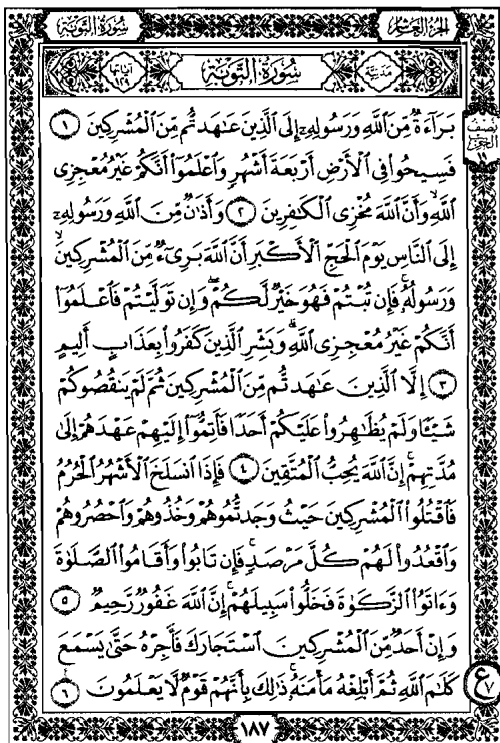 سُورَةُ التَّوْبَةِ
الجُزءُ العَاشِرُ
مَدَنِيَّة
سُورَةُ التَّوْبَةِ
آيَاتُهَا ١٢٩
بَرَآءَةٌ مِّنَ ٱللَّهِ وَرَسُولِهِۦٓ إِلَى ٱلَّذِينَ عَـٰهَدتُّم مِّنَ ٱلْمُشْرِكِينَ ١
نِصْف
الحِزْب
١٩
فَسِيحُوا۟ فِى ٱلْأَرْضِ أَرْبَعَةَ أَشْهُرٍ وَٱعْلَمُوٓا۟ أَنَّكُمْ غَيْرُ مُعْجِزِى
ٱللَّهِ ۙ وَأَنَّ ٱللَّهَ مُخْزِى ٱلْكَـٰفِرِينَ ٢ وَأَذَٰنٌ مِّنَ ٱللَّهِ وَرَسُولِهِۦٓ
إِلَى ٱلنَّاسِ يَوْمَ ٱلْحَجِّ ٱلْأَكْبَرِ أَنَّ ٱللَّهَ بَرِىٓءٌ مِّنَ ٱلْمُشْرِكِينَ ۙ
وَرَسُولُهُۥ ۚ فَإِن تُبْتُمْ فَهُوَ خَيْرٌ لَّكُمْ ۖ وَإِن تَوَلَّيْتُمْ فَٱعْلَمُوٓا۟
أَنَّكُمْ غَيْرُ مُعْجِزِى ٱللَّهِ ۗ وَبَشِّرِ ٱلَّذِينَ كَفَرُوا۟ بِعَذَابٍ أَلِيمٍ
٣ إِلَّا ٱلَّذِينَ عَـٰهَدتُّم مِّنَ ٱلْمُشْرِكِينَ ثُمَّ لَمْ يَنقُصُوكُمْ
شَيْـًٔا وَلَمْ يُظَـٰهِرُوا۟ عَلَيْكُمْ أَحَدًا فَأَتِمُّوٓا۟ إِلَيْهِمْ عَهْدَهُمْ إِلَىٰ
مُدَّتِهِمْ ۚ إِنَّ ٱللَّهَ يُحِبُّ ٱلْمُتَّقِينَ ٤ فَإِذَا ٱنسَلَخَ ٱلْأَشْهُرُ ٱلْحُرُمُ
فَٱقْتُلُوا۟ ٱلْمُشْرِكِينَ حَيْثُ وَجَدتُّمُوهُمْ وَخُذُوهُمْ وَٱحْصُرُوهُمْ
وَٱقْعُدُوا۟ لَهُمْ كُلَّ مَرْصَدٍ ۚ فَإِن تَابُوا۟ وَأَقَامُوا۟ ٱلصَّلَوٰةَ
وَءَاتَوُا۟ ٱلزَّكَوٰةَ فَخَلُّوا۟ سَبِيلَهُمْ ۚ إِنَّ ٱللَّهَ غَفُورٌ رَّحِيمٌ ٥
وَإِنْ أَحَدٌ مِّنَ ٱلْمُشْرِكِينَ ٱسْتَجَارَكَ فَأَجِرْهُ حَتَّىٰ يَسْمَعَ
كَلَـٰمَ ٱللَّهِ ثُمَّ أَبْلِغْهُ مَأْمَنَهُۥ ۚ ذَٰلِكَ بِأَنَّهُمْ قَوْمٌ لَّا يَعْلَمُونَ ٦
ع
٧
١٨٧